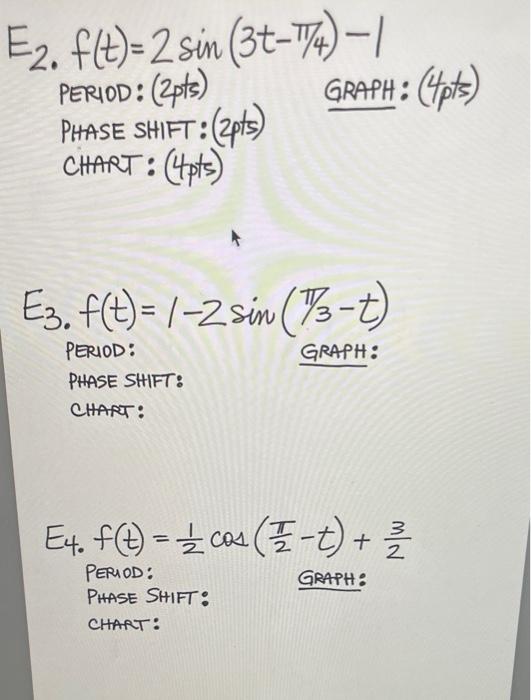 E2. f(t)=2 sin (3t-π/4)-1
PERIOD: (2pts) GRAPH: (4pts)
PHASE SHIFT: (2pts)
CHART: (4pts)
E3. f(t)= 1-2 sin (π/3-t)
PERIOD: GRAPH:
PHASE SHIFT:
CHART:
E4. f(t) = 1/2 cos (π/2-t) + 3/2
PERIOD: GRAPH:
PHASE SHIFT:
CHART: